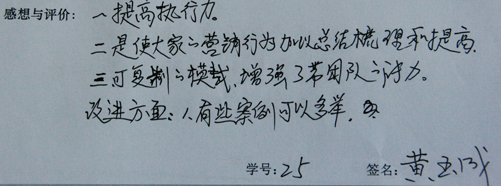 感想与评价：一提高执行力。
二是使大家的营销行为加以总结梳理和提高
三可复制的模式，增强了带团队的能力。
改进方面：1、有些案例可以多举，
学号：25 签名：黄玉